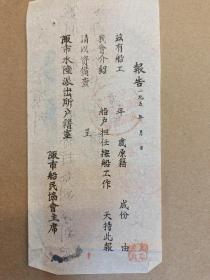 報告 一九五 年 月 日
茲有船工 年 歲原籍 成份 由
我會介紹 船戶担任 船工作 天特此報
請以資備查
呈
市水陸派出所戶籍室
市船民協會主席